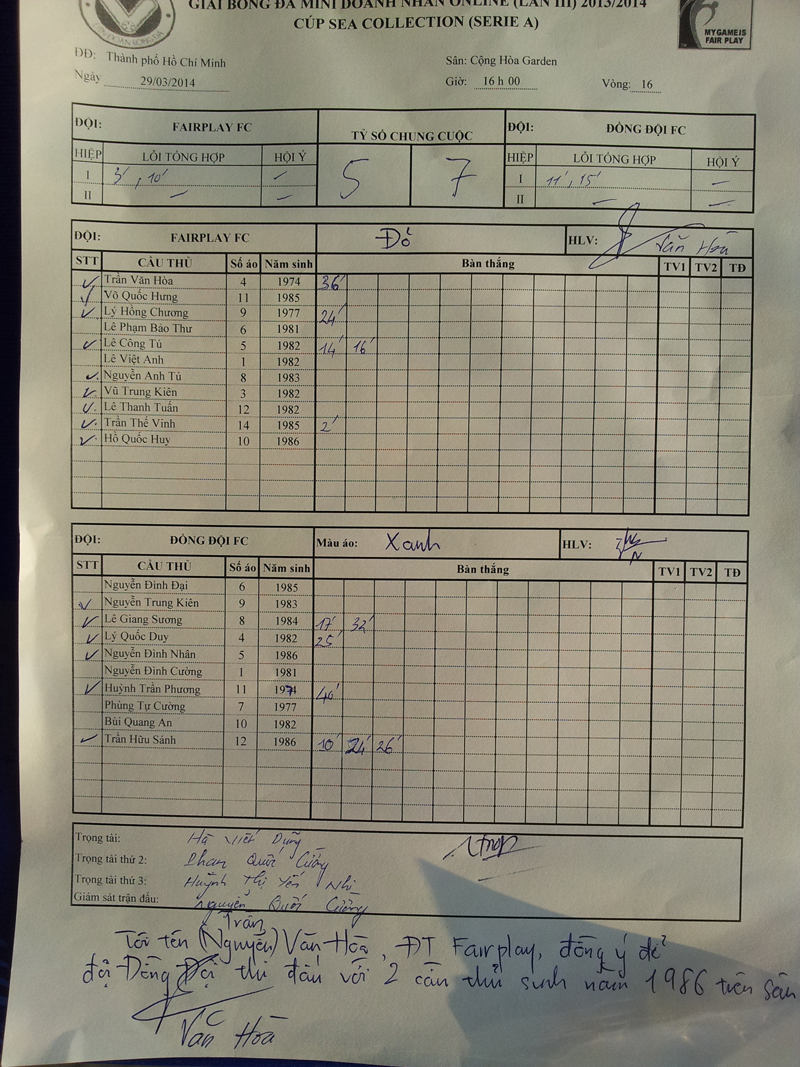 GIẢI BÓNG ĐÁ MINI DOANH NHÂN ONLINE (LẦN III) 2013/2014
CÚP SEA COLLECTION (SERIE A)
MYGAMEIS
FAIR PLAY
DĐ: Thành phố Hồ Chí Minh
Sân: Cộng Hòa Garden
Ngày 29/03/2014
Giờ: 16 h 00
Vòng: 16
ĐỘI: FAIRPLAY FC
TỶ SỐ CHUNG CUỘC
ĐỘI: ĐỒNG ĐỘI FC
HIỆP LỖI TỔNG HỢP HỘI Ý
5 7
HIỆP LỖI TỔNG HỢP HỘI Ý
I 3', 10' —
I 11', 15' —
II — —
II — —
ĐỘI: FAIRPLAY FC Đỏ HLV: Văn Hòa
STT CẦU THỦ Số áo Năm sinh Bàn thắng TV1 TV2 TĐ
Trần Văn Hòa 4 1974 36'
Võ Quốc Hưng 11 1985
Lý Hồng Chương 9 1977 24'
Lê Phạm Bảo Thư 6 1981
Lê Công Tú 5 1982 14' 16'
Lê Việt Anh 1 1982
Nguyễn Anh Tú 8 1983
Vũ Trung Kiên 3 1982
Lê Thanh Tuấn 12 1982
Trần Thế Vinh 14 1985 2'
Hồ Quốc Huy 10 1986
ĐỘI: ĐỒNG ĐỘI FC Màu áo: Xanh HLV:
STT CẦU THỦ Số áo Năm sinh Bàn thắng TV1 TV2 TĐ
Nguyễn Đình Đại 6 1985
Nguyễn Trung Kiên 9 1983
Lê Giang Sương 8 1984 17' 32'
Lý Quốc Duy 4 1982 25'
Nguyễn Đình Nhân 5 1986
Nguyễn Đình Cường 1 1981
Huỳnh Trần Phương 11 1971 40'
Phùng Tự Cường 7 1977
Bùi Quang An 10 1982
Trần Hữu Sánh 12 1986 10' 24' 26'
Trọng tài: Hà Viết Dũng
Trọng tài thứ 2: Phan Quốc Cường
Trọng tài thứ 3: Huỳnh Thị Yến Nhi
Giám sát trận đấu: Nguyễn Quốc Cường
Trần
Tôi tên (Nguyễn) Văn Hòa, ĐT Fairplay, đồng ý để
đội Đồng Đội thi đấu với 2 cầu thủ sinh năm 1986 trên sân
Văn Hòa